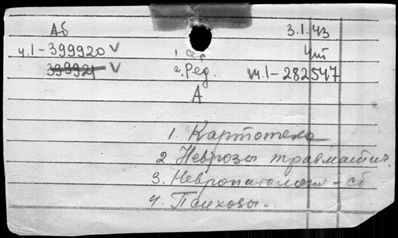 Аб 3.1.43
ч.1-399920 V 1 сер
399921 V 2. Ред. м.1-282547
А
1. Картотека
2 Неврозы травматич.
3. Невропатология - сб
4. Психозы.